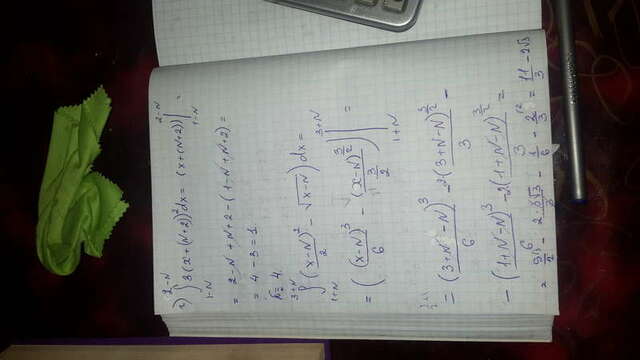 2) ∫_{1-N}^{2-N} 3(x+(N+2))² dx = (x+(N+2)) |_{1-N}^{2-N} =
= 2-N+N+2-(1-N+N+2) =
= 4-3=1.
∫_{1+N}^{3+N} ((x-N)²/2 - √(x-N)) dx =
= ((x-N)³/6 - (x-N)^{3/2}/(3/2)) |_{1+N}^{3+N} =
= ((3+N-N)³/6 - 2(3+N-N)^{3/2}/3 -
- ((1+N-N)³/6 - 2(1+N-N)^{3/2}/3 =